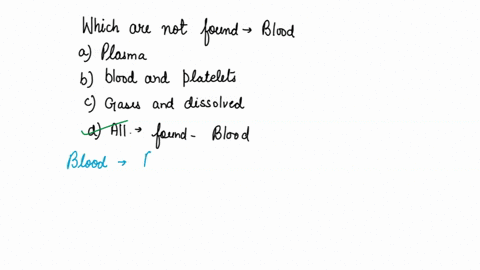 Which are not found → Blood
a) Plasma
b) blood and platelets
c) Gases and dissolved
d) All. → found - Blood
Blood →